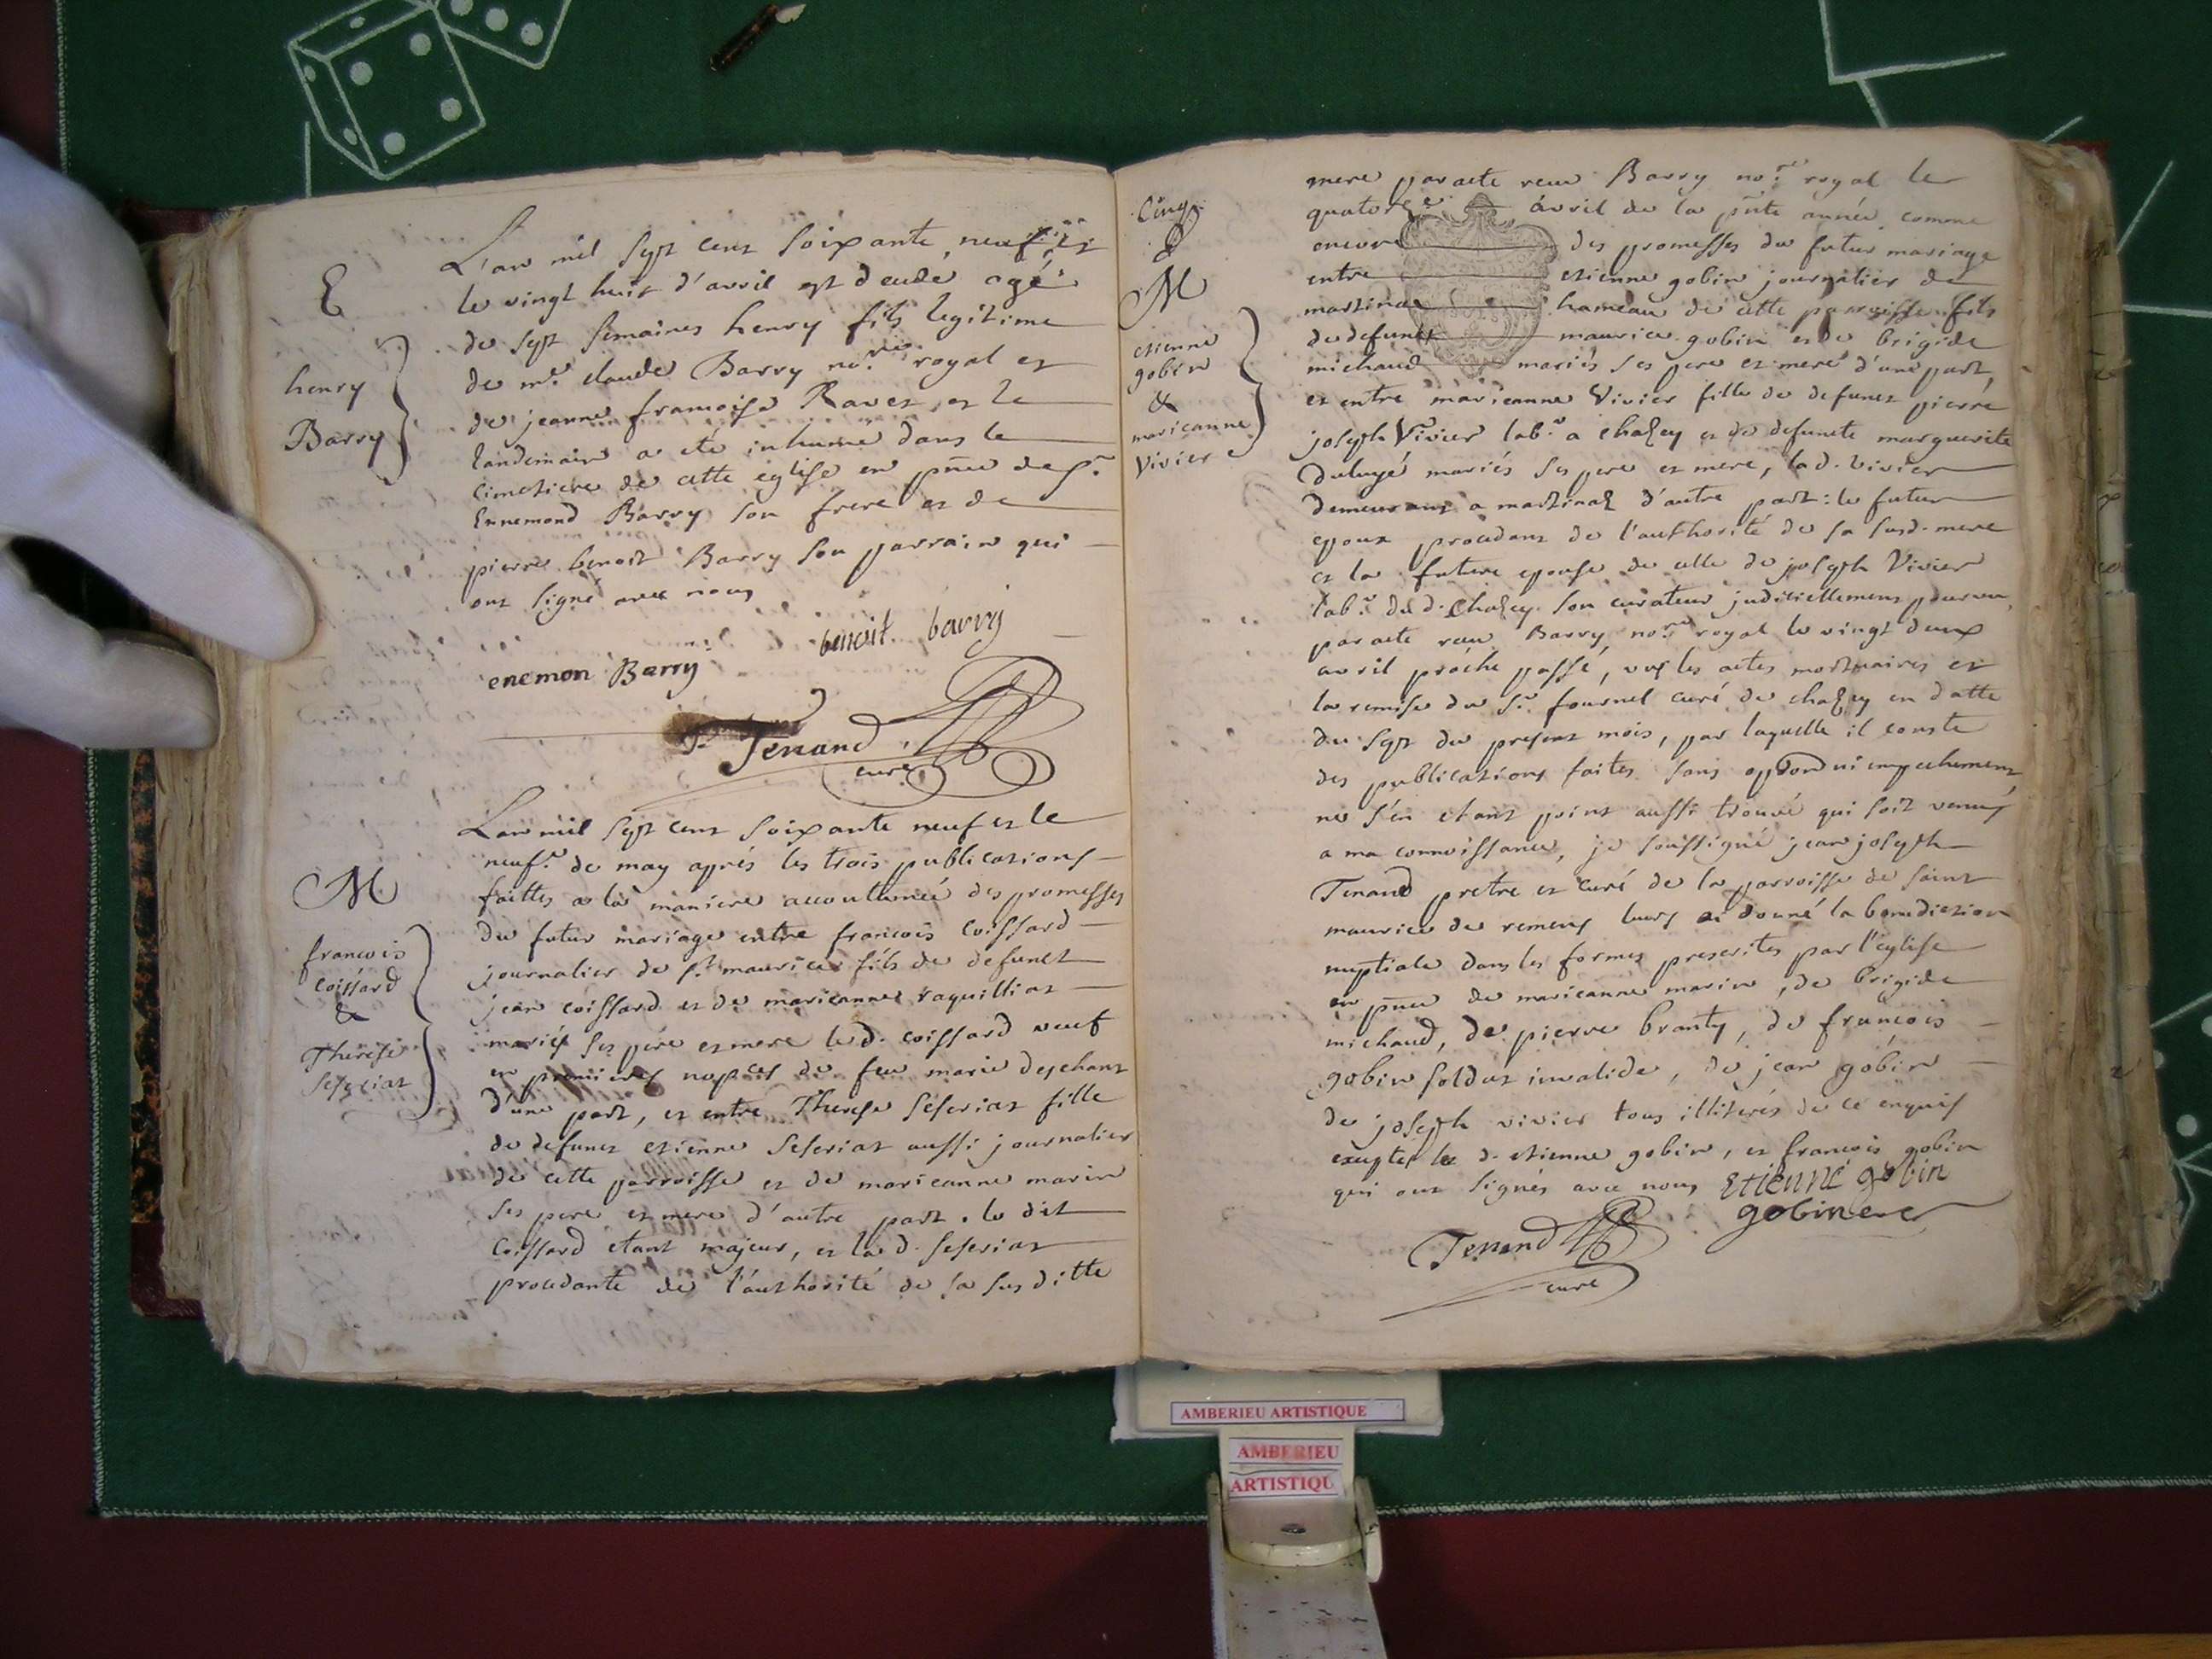 E
henry
Barry
L'an mil sept cent soixante neuf et
le vingt huit d'avril est decedé agé
de sept semaines henry fils legitime
de mre claude Barry nore royal et
de jeanne francoise Ravet, et le
landemain a eté inhumé dans le
cimetiere de cette eglise en pñce de sr
Ennemond Barry son frere et de
pierre benoit Barry son parrain qui
ont signé avec nous
benoit barry
enemon Barry
Tenand
curé
M
francois
Coissard
&
Therese
Seseriat
L'an mil sept cent soixante neuf et le
neuf.e de may aprés les trois publications
faittes a la maniere accoutumée des promesses
du futur mariage entre francois Coissard
journalier de st maurice fils de defunct
jean coissard et de marieanne vaquilliat
mariés ses pére et mere le d. coissard veuf
en premieres nopces de feu marie deschant
d'une part, et entre Therese Seseriat fille
de defunct etienne Seseriat aussi journalier
de cette parroisse et de marieanne marin
ses pere et mere d'autre part. le dit
Coissard etant majeur, et la d. seseriat
procedante de l'authorité de sa sus ditte
Cinq
&
M
etienne
gobin
&
marieanne
Vivier
mere par acte receu Barry nore royal le
quatorze avril de la pñte année, comme
encore des promesses du futur mariage
entre etienne gobin journalier de
martinaz hameau de cette parroisse fils
de defunct maurice gobin et de brigide
michaud mariés ses pere et mere d'une part,
et entre marieanne Vivier fille de defunct pierre
joseph Vivier labr a chazey et de defuncte marguerite
mariés ses pere et mere, la d. vivier
demeurant a martinaz d'autre part: le futur
epoux procedant de l'authorité de sa susd. mere
et la future epouse de celle de joseph Vivier
labr du d. Chazey son curateur judiciellement pourvu
par acte receu Barry nore royal le vingt deux
avril proche passé, vus les actes mortuaires et
la remise du sr fournel curé de chazey en datte
du sept du present mois, par laquelle il conste
des publications faites sans oppoon ni empechement
ne s'en etant point aussi trouvé qui soit venus
a ma connoissance, je soussigné jean joseph
Tenand pretre et curé de la parroisse de saint
maurice de remens leurs ai donné la benediction
nuptiale dans les formes prescrites par l'eglise
en pñce de marieanne marin, de brigide
michaud, de pierre branty, de françois
gobin soldat invalide, de jean gobin
de joseph vivier tous illiterés de ce enquis
exceptés le d. etienne gobin, et francois gobin
qui ont signés avec nous Etienne gobin
gobin
Tenand
curé
AMBERIEU ARTISTIQUE
AMBERIEU
ARTISTIQU